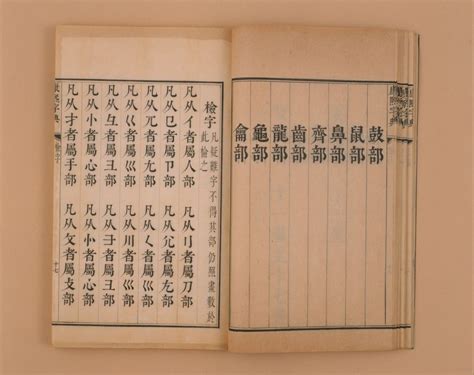 鼓部
鼠部
鼻部
齊部
齒部
龍部
龜部
龠部
檢字 凡疑難字不得其部仍照畫數於
此檢之
凡从亻者屬人部 凡从刂者屬刀部
凡从㔾者屬卩部 凡从尣者屬尢部
凡从兀者屬尢部 凡从𡿨者屬巛部
凡从巜者屬巛部 凡从川者屬巛部
凡从彑者屬彐部 凡从⺕者屬彐部
凡从忄者屬心部 凡从⺗者屬心部
凡从扌者屬手部 凡从攵者屬攴部
康熙字典 檢字